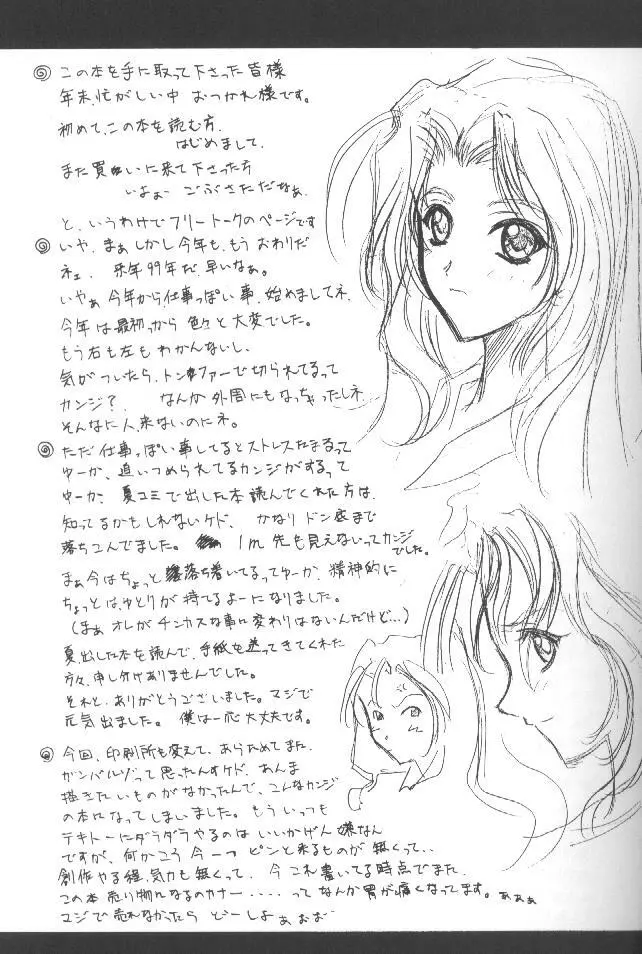 この本を手に取って下さった皆様
年末、忙がしい中 おつかれ様です。
初めて、この本を読む方、
はじめまして、
また買いに来て下さった方
いよぉー ごぶさただなぁ、
と、いうわけでフリートークのページです
いや、まぁしかし今年も、もう おわりだ
ネェ、 来年99年だ 早いなぁ。
いやぁ 今年から仕事っぽい事、始めましてネ、
今年は最初っから 色々と大変でした。
もう右も左もわかんないし、
気がついたら、トンファーで切られてるって
カンジ? なんか 外周にもなっちゃったしネ
そんなに人、来ないのにネ。
ただ仕事っぽい事してるとストレスたまるって
ゆーか、追いつめられてるカンジがするって
ゆーか、 夏コミで出した本 読んでくれた方は、
知ってるかもしれないケド、 かなり ドン底まで
落ちこんでました。 1m先も見えないってカンジ
でした。
まぁ今はちょっと 落ち着いてるってゆーか、精神的に
ちょっとは、ゆとりが 持てるよーになりました。
(まぁ オレがチンカスな事に変わりはないんだけど…)
夏、出した本を読んで、手紙を送ってきてくれた
方々、申し分けありませんでした。
それと、ありがとうございました。マジで
元気出ました。 僕は一応大丈夫です。
今回、印刷所も変えて、あらためてまた、
ガンバルゾって思ったんすケド、あんま
描きたいものがなかったんで、こんなカンジ
の本になってしまいました。もう いっつも
テキトーにダラダラやるのは いいかげん 嫌なん
ですが、何かこう 今一つ ピンと来るものが無くって‥
創作やる程、気力も無くって、 今 これ書いてる時点でまた、
この本 売り物になるのカナー・・・・って なんか胃が痛くなってます。ぁぁぁ
マジで売れなかったら どーしよ ぁぉぉ